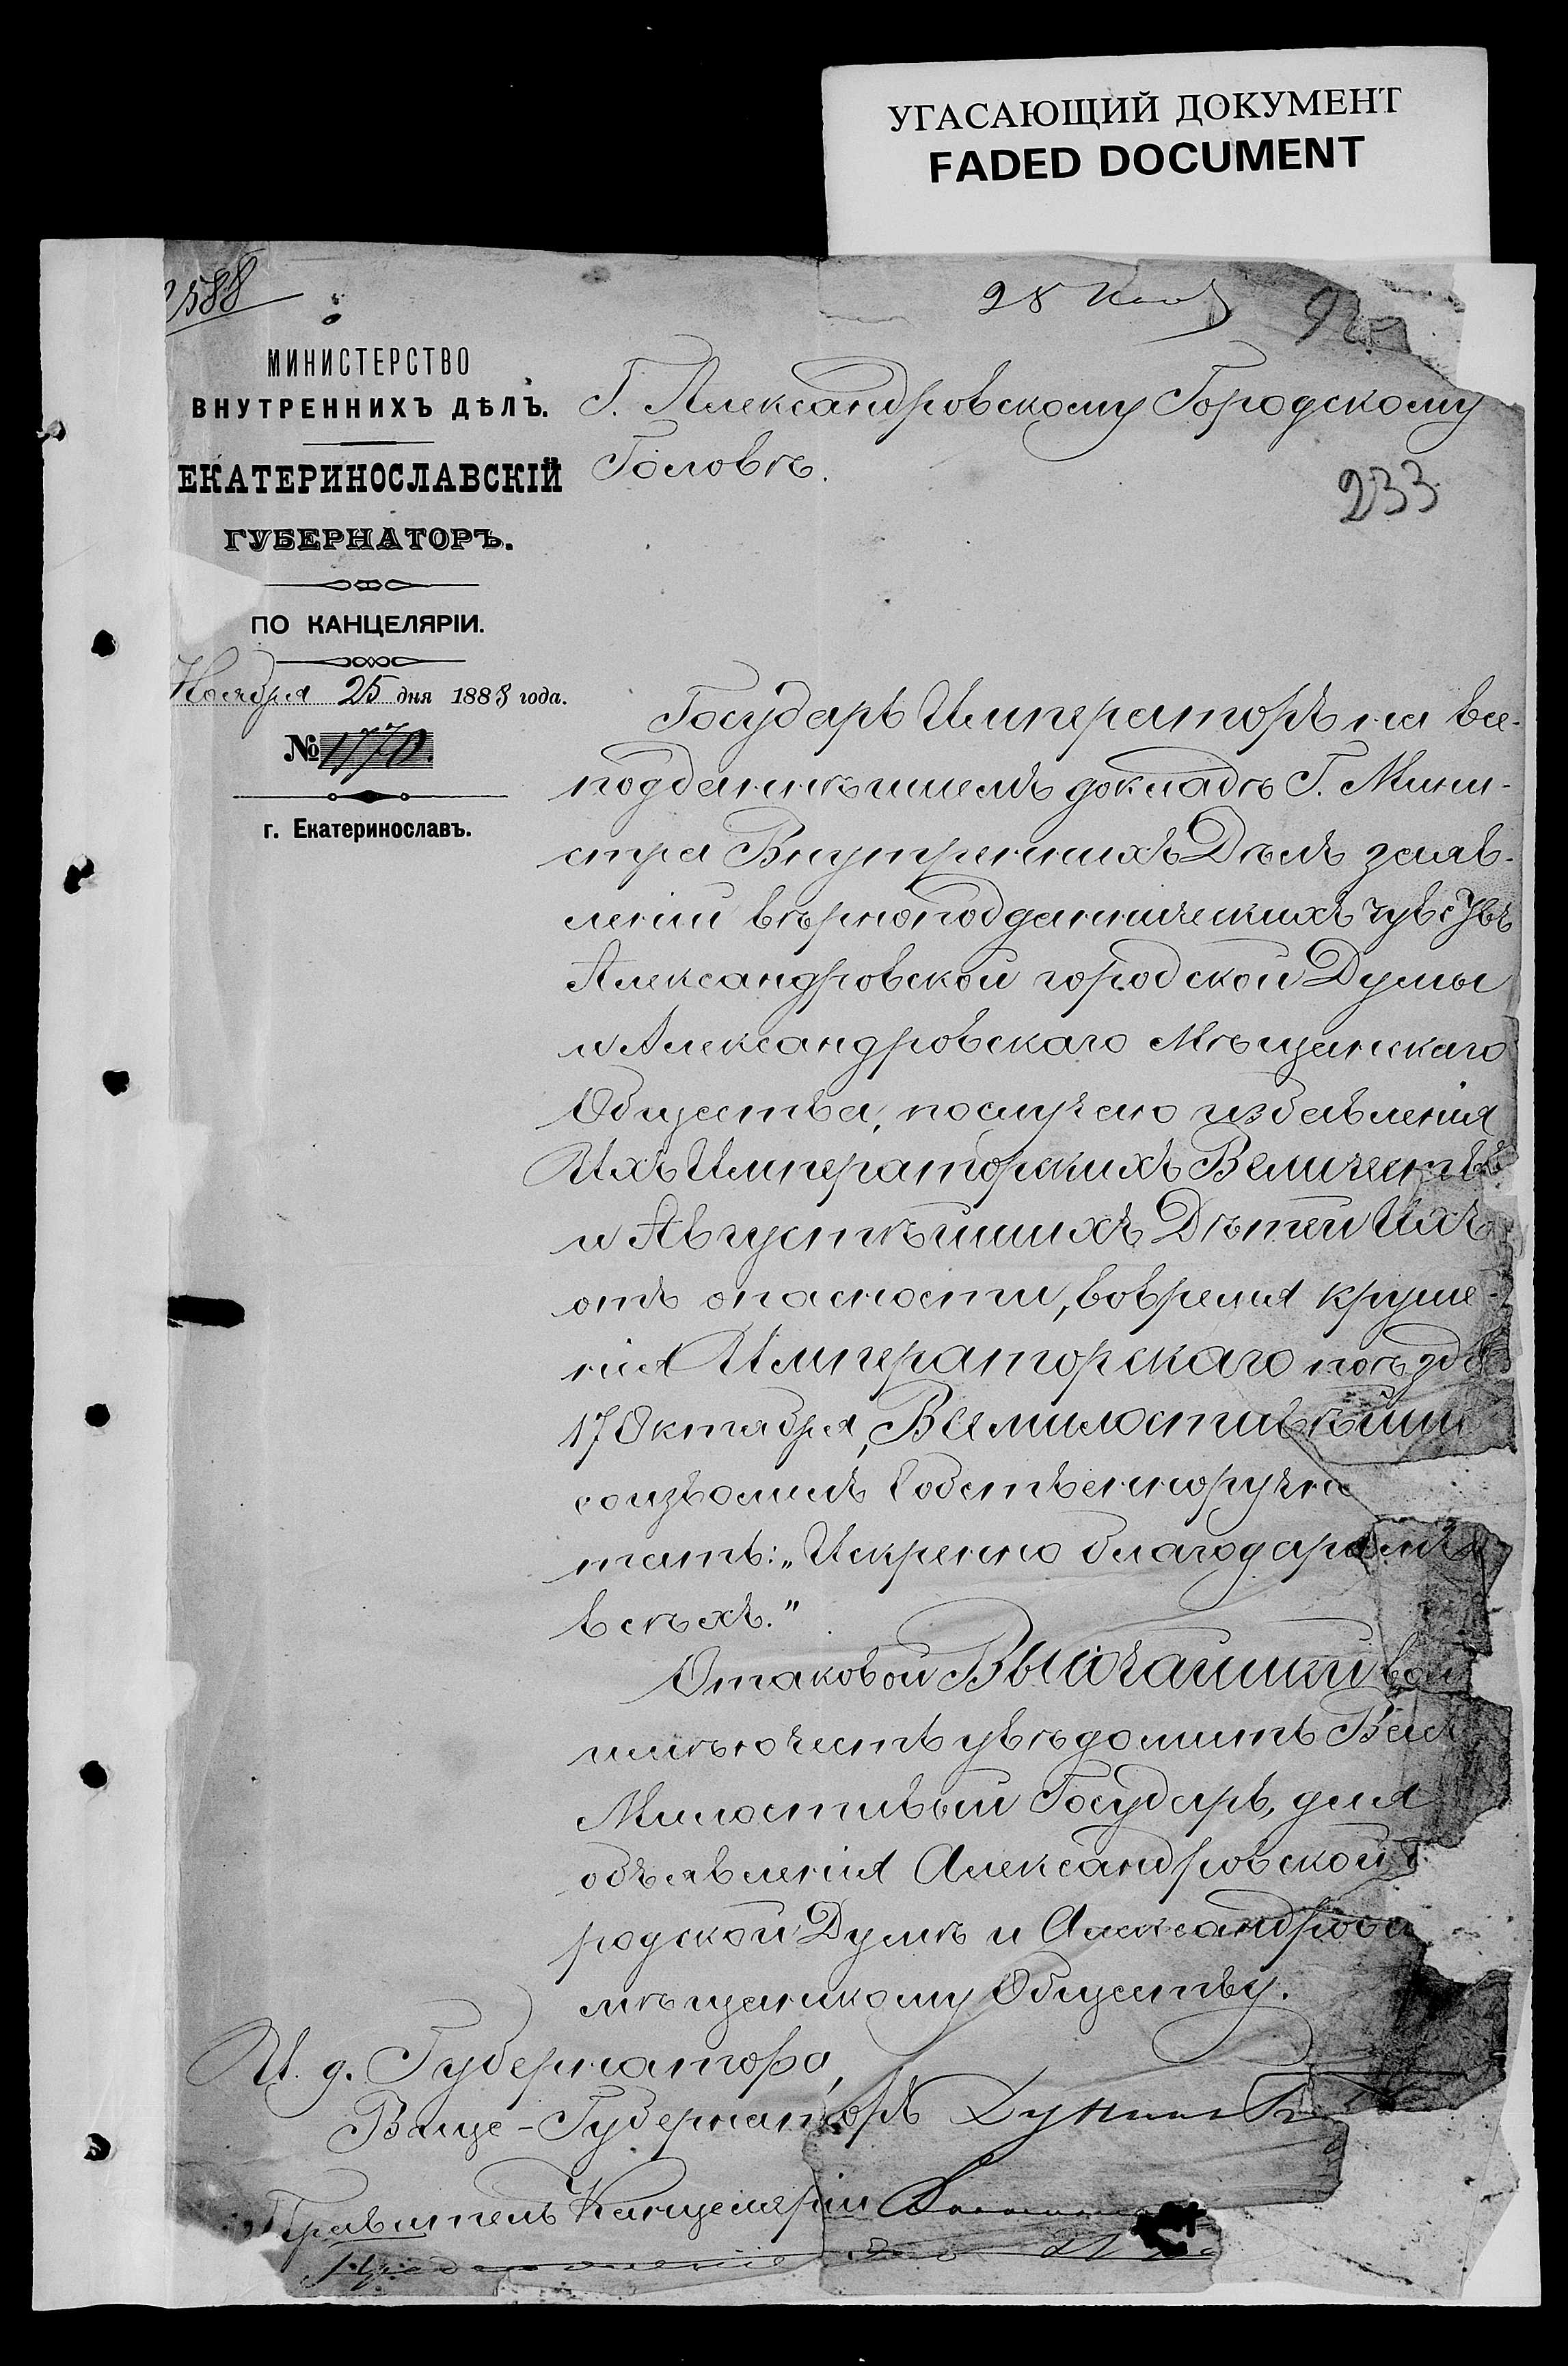 УГАСАЮЩИЙ ДОКУМЕНТ
FADED DOCUMENT
2588
28 Нояб
МИНИСТЕРСТВО
ВНУТРЕННИХЪ ДѢЛЪ.
ЕКАТЕРИНОСЛАВСКІЙ
ГУБЕРНАТОРЪ.
ПО КАНЦЕЛЯРІИ.
Ноября 25 дня 1888 года.
№ 1770.
г. Екатеринославъ.
Г. Александровскому Городскому
Головѣ.
233
Государь Императоръ на все-
подданнѣйшемъ докладѣ Г. Мини-
стра Внутреннихъ Дѣлъ заяв-
леній вѣрноподданническихъ чувствъ
Александровской городской Думы
и Александровскаго Мѣщанскаго
Общества, по случаю избавленія
Ихъ Императорскихъ Величествъ
и Августѣйшихъ Дѣтей Ихъ
отъ опасности, во время круше-
нія Императорскаго поѣзда
17 Октября, Всемилостивѣйше
соизволилъ Собственноручно
тать: „Искренно благодаримъ
всѣхъ."
О таковой Высочайшей вол
имѣю честь увѣдомить Васъ
Милостивый Государь, для
объявленія Александровской Г
родской Думѣ и Александровс
мѣщанскому Обществу.
И. д. Губернатора,
Вице-Губернаторъ
Правитель Канцеляріи